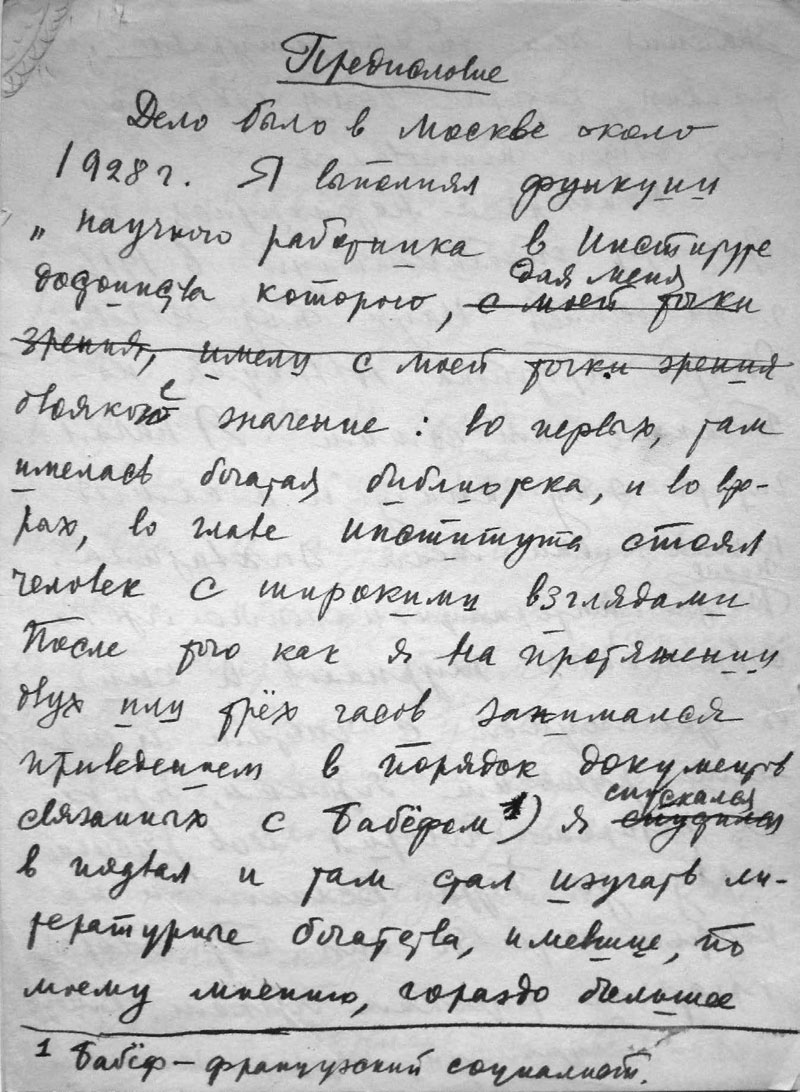 Предисловие
Дело было в Москве около
1928 г. Я выполнял функции
„научного работника в Институте
достоинства которого, для меня с моей точки
зрения, имели с моей точки зрения
двоякое значение: во первых, там
имелась богатая библиотека, и во вто-
рых, во главе института стоял
человек с широкими взглядами
После того как я на протяжении
двух или трёх часов занимался
приведением в порядок документов
связанных с Бабёфом 1) я спускался
в подвал и там стал изучать ли-
тературные богатства, имевшие, по
моему мнению, гораздо большее
1 Бабёф – французский социалист.